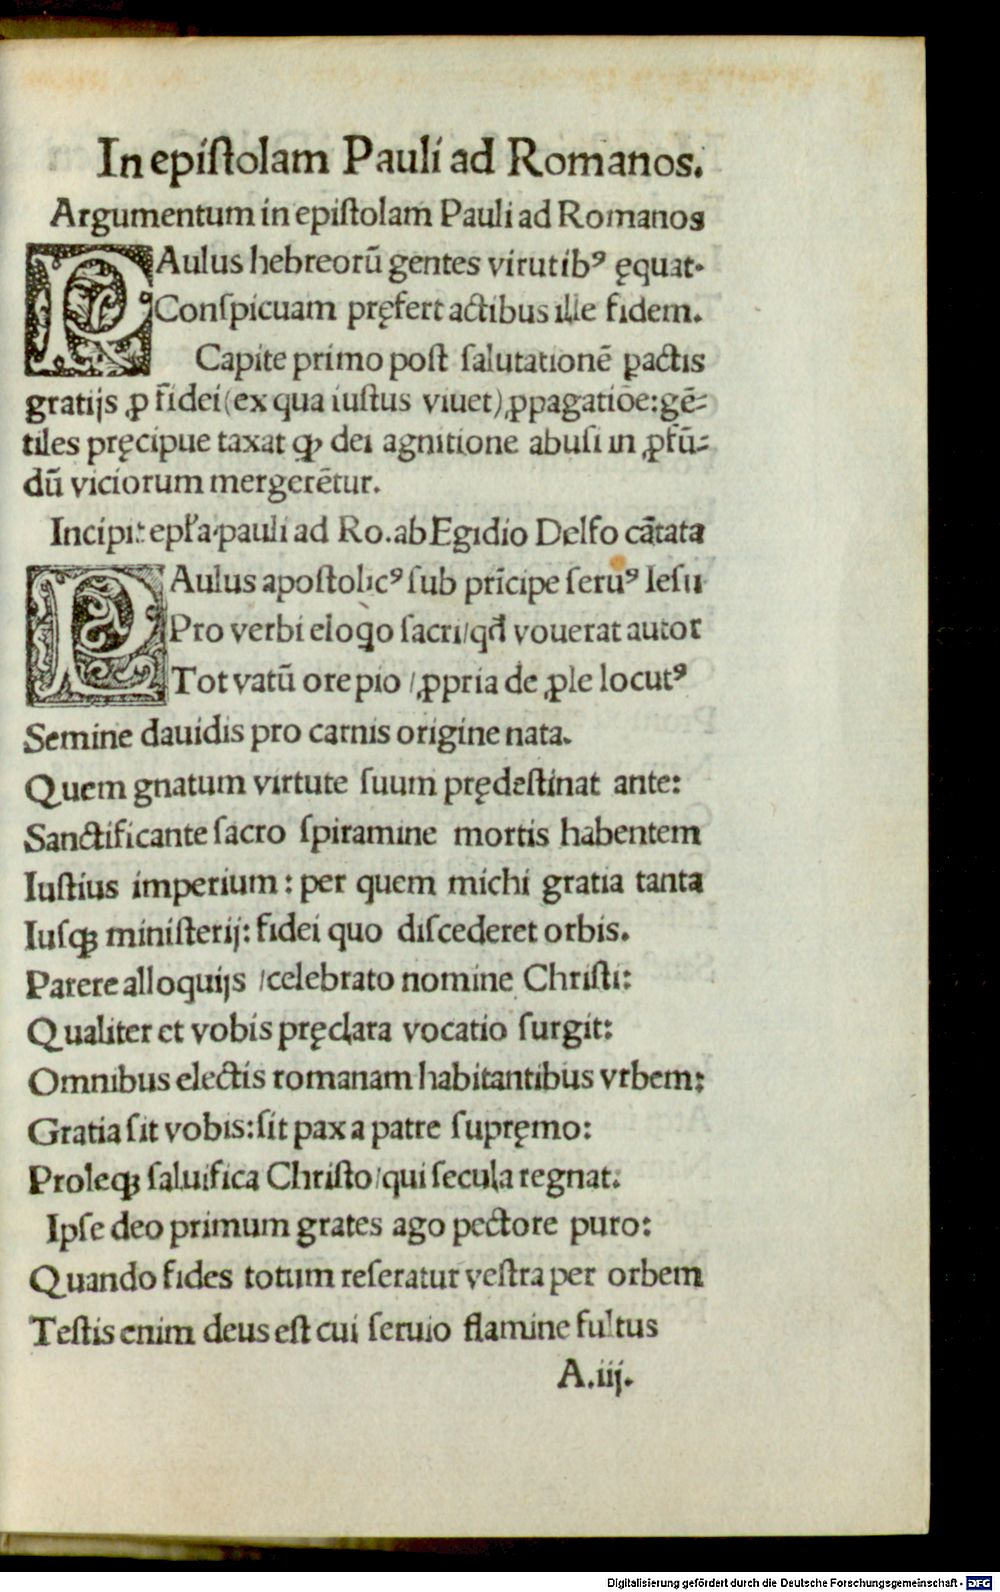 In epiſtolam Pauli ad Romanos.
Argumentum in epiſtolam Pauli ad Romanos
PAulus hebreorū gentes virutibꝰ ęquat·
Conſpicuam pręfert actibus ille fidem.
Capite primo poſt ſalutationē ꝑactis
gratijs ꝓ fidei (ex qua iuſtus viuet) ꝓpagatiōe: gē⸗
tiles pręcipue taxat ꝙ dei agnitione abuſi in ꝓfū⸗
dū viciorum mergerētur.
Incipit epl̄a pauli ad Ro. ab Egidio Delfo cātata
PAulus apoſtolicꝰ ſub prīcipe ſeruꝰ Ieſu
Pro verbi eloqo ſacri / qđ vouerat autor
Tot vatū ore pio / ꝓpria de ꝓle locutꝰ
Semine dauidis pro carnis origine nata.
Quem gnatum virtute ſuum prędeſtinat ante:
Sanctificante ſacro ſpiramine mortis habentem
Iuſtius imperium: per quem michi gratia tanta
Iuſqꝫ miniſterij: fidei quo diſcederet orbis.
Parere alloquijs / celebrato nomine Chriſti:
Qualiter et vobis pręclara vocatio ſurgit:
Omnibus electis romanam habitantibus vrbem:
Gratia ſit vobis: ſit pax a patre ſupręmo:
Proleqꝫ ſaluifica Chriſto / qui ſecula regnat.
Ipſe deo primum grates ago pectore puro:
Quando fides totum reſeratur veſtra per orbem
Teſtis enim deus eſt cui ſeruio flamine fultus
A.iij.
Digitalisierung gefördert durch die Deutsche Forschungsgemeinschaft - DFG